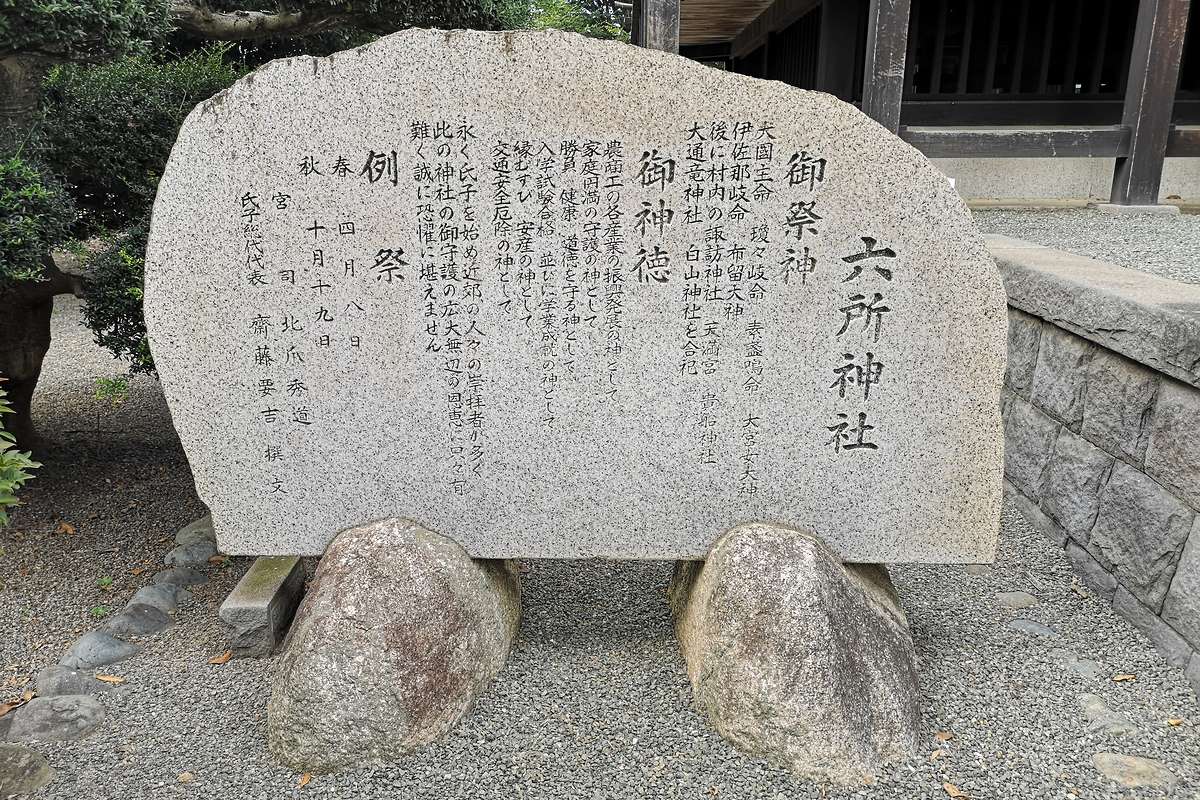 六所神社
御祭神
大国主命 瓊々岐命 素盞鳴命 大宮女大神
伊佐那岐命 布留大神
後に村内の諏訪神社 天満宮 貴船神社
大通竜神社 白山神社を合祀
御神徳
農商工の各産業の振興発展の神として
家庭円満の守護の神として
勝負 健康 道徳を守る神として
入学試験合格 並びに学業成就の神として
縁むすび 安産の神として
交通安全厄除の神として
永く氏子を始め近郊の人々の崇拝者が多く
此の神社の御守護の広大無辺の恩恵に口々有
難く誠に恐懼に堪えません
例祭
春 四月八日
秋 十月十九日
宮司 北爪秀道
氏子総代代表 齋藤要吉 撰文